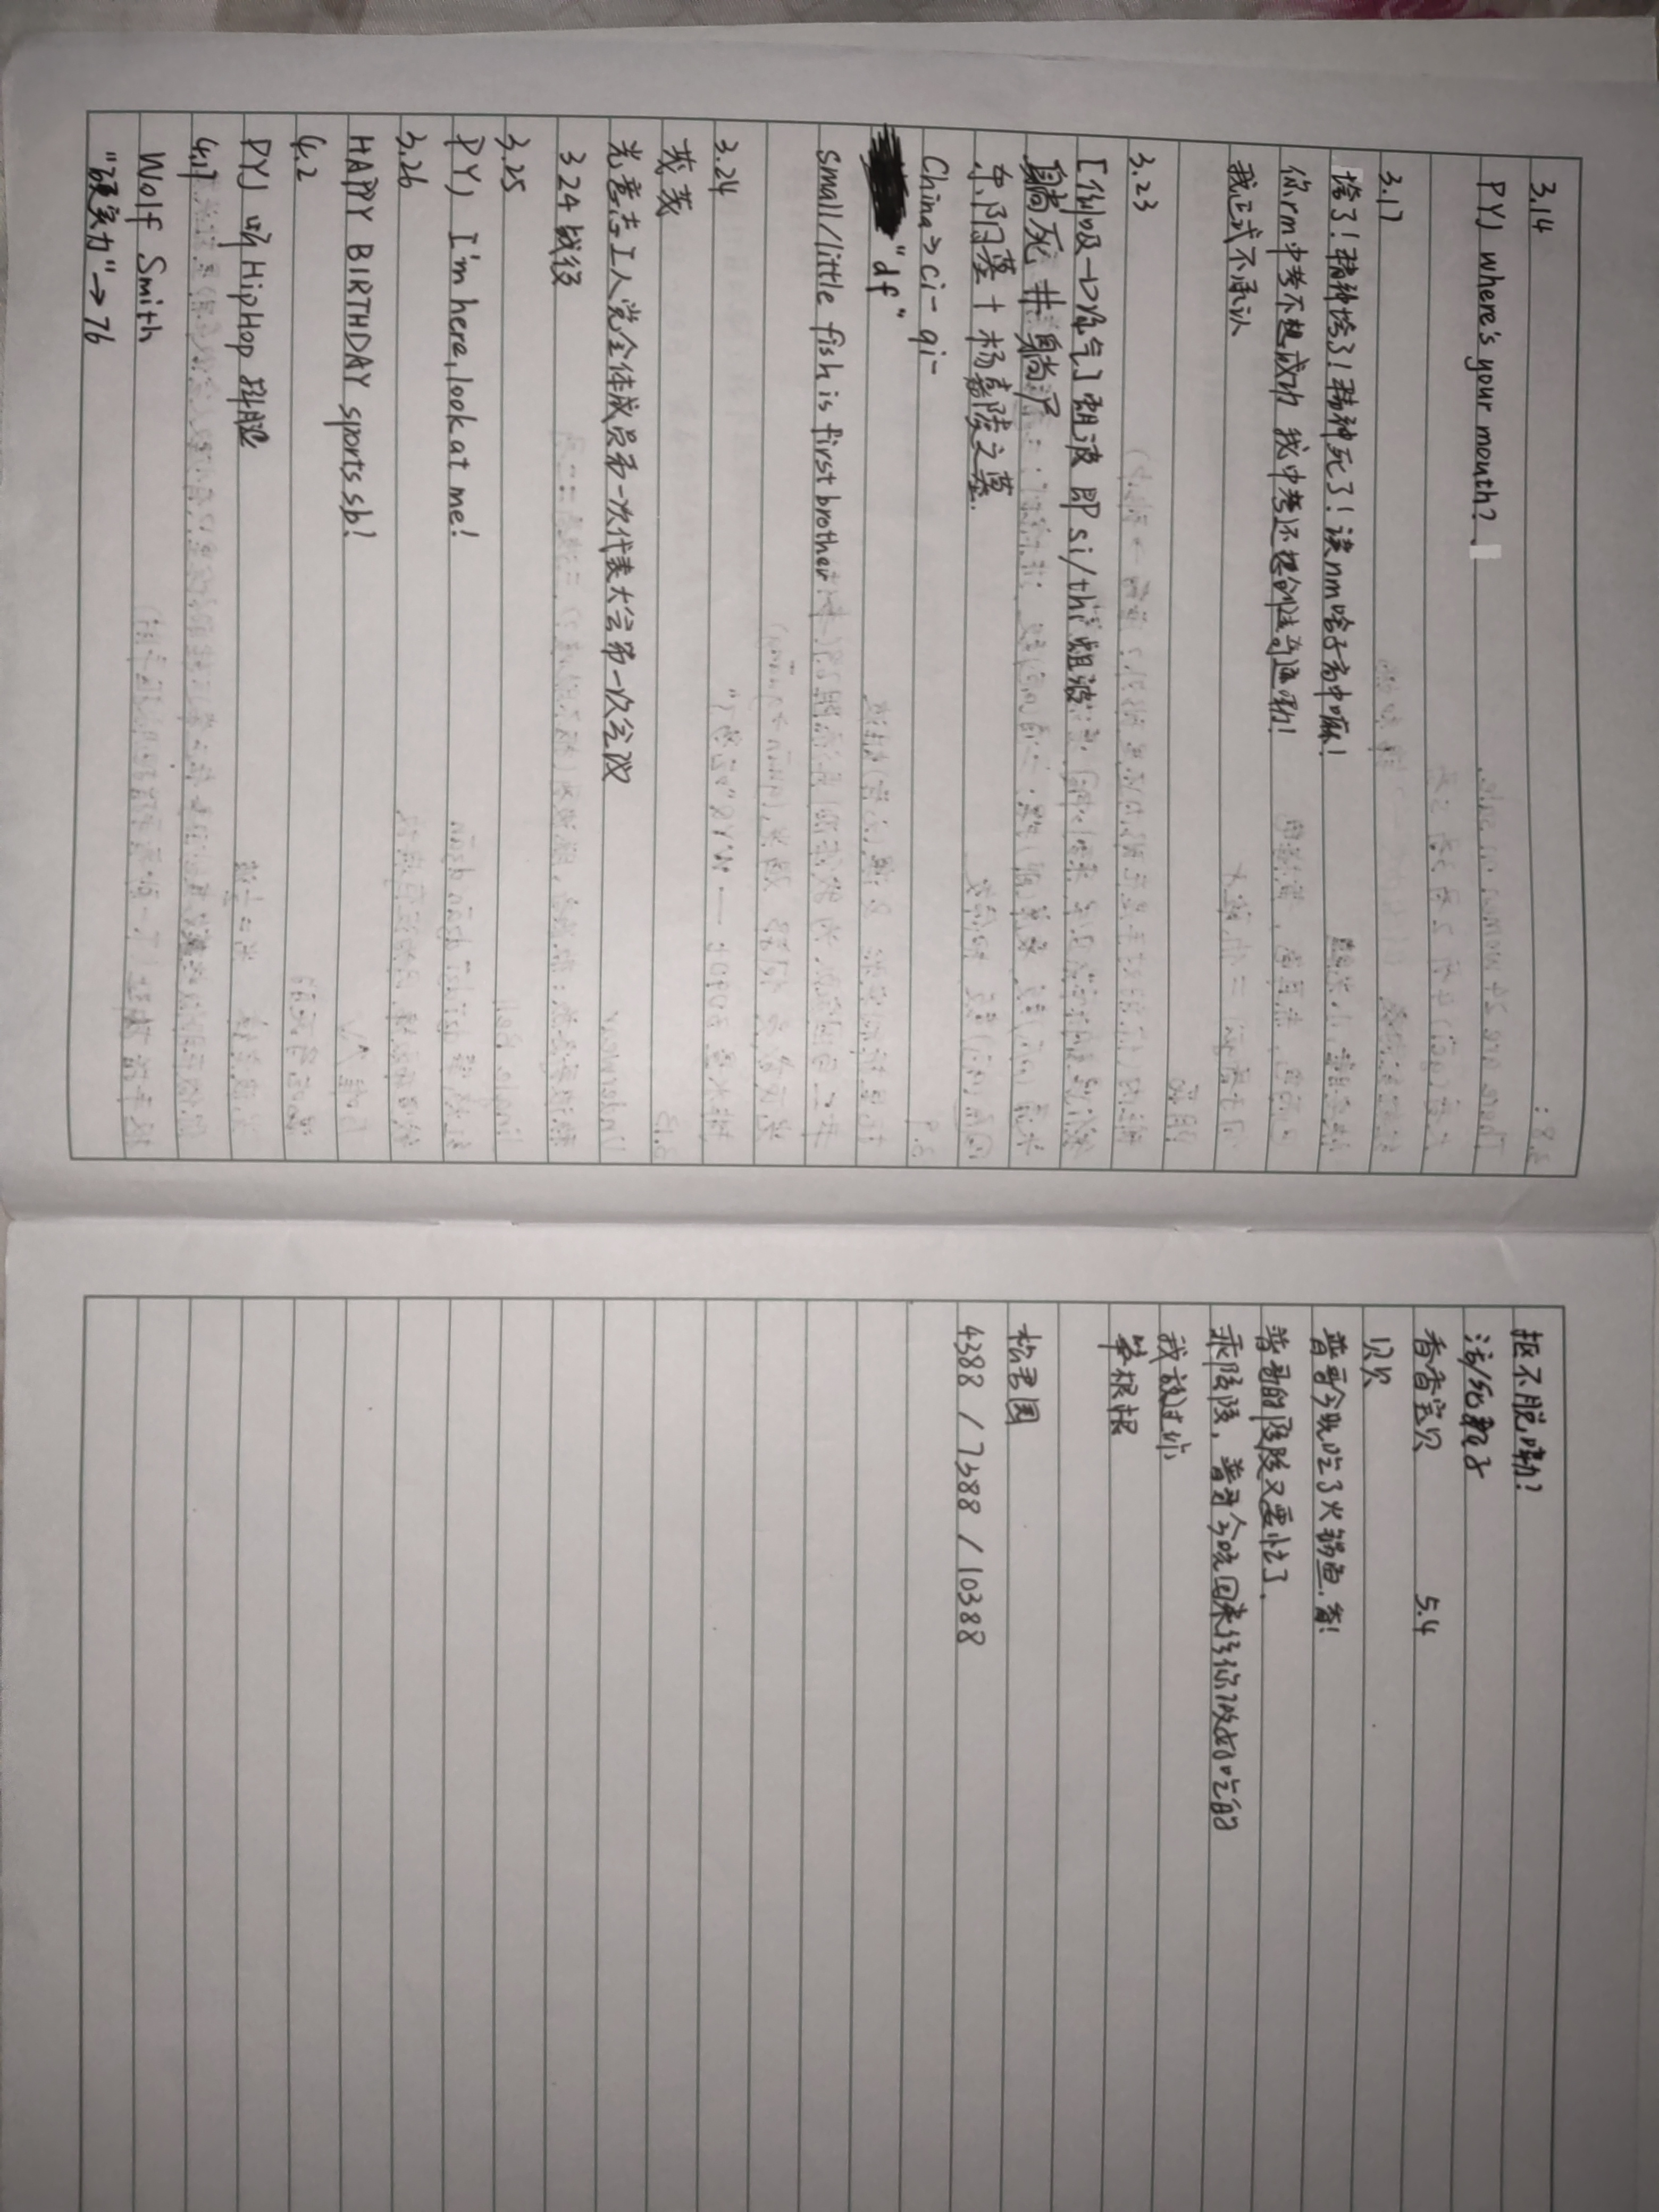 3.14
PYJ where's your mouth?
3.17
垮了!精神垮了!精神死了!读nm啥子高中嘛!
你rm中考不想成功 我中考还想创造奇迹嘞!
我正式不承认
3.23
[倒吸一口冷气] 翌波 即 si/thi 姐波
躺死 非 躺尸
东门墓十杨嘉陵之墓
China→ci-qi-
"df"
small/little fish is first brother
3.24
戎羲
光孝志工人党全体成员第一次代表大会第一次会议
3.24战役
3.25
PYJ I'm here, look at me!
3.26
HAPPY BIRTHDAY sports sb!
4.2
PYJ 听HipHop 抖腿
4.17
Wolf Smith
"硬实力"→76
抠不脱嘞?
香香宝贝 5.4
贝贝
普哥今晚吃了火锅鱼.香!
普哥的陵陵又要忙了.
乖陵陵,普哥今晚回来给你做好吃的
我放过你
笋根根
松君园
4388 / 7388 / 10388